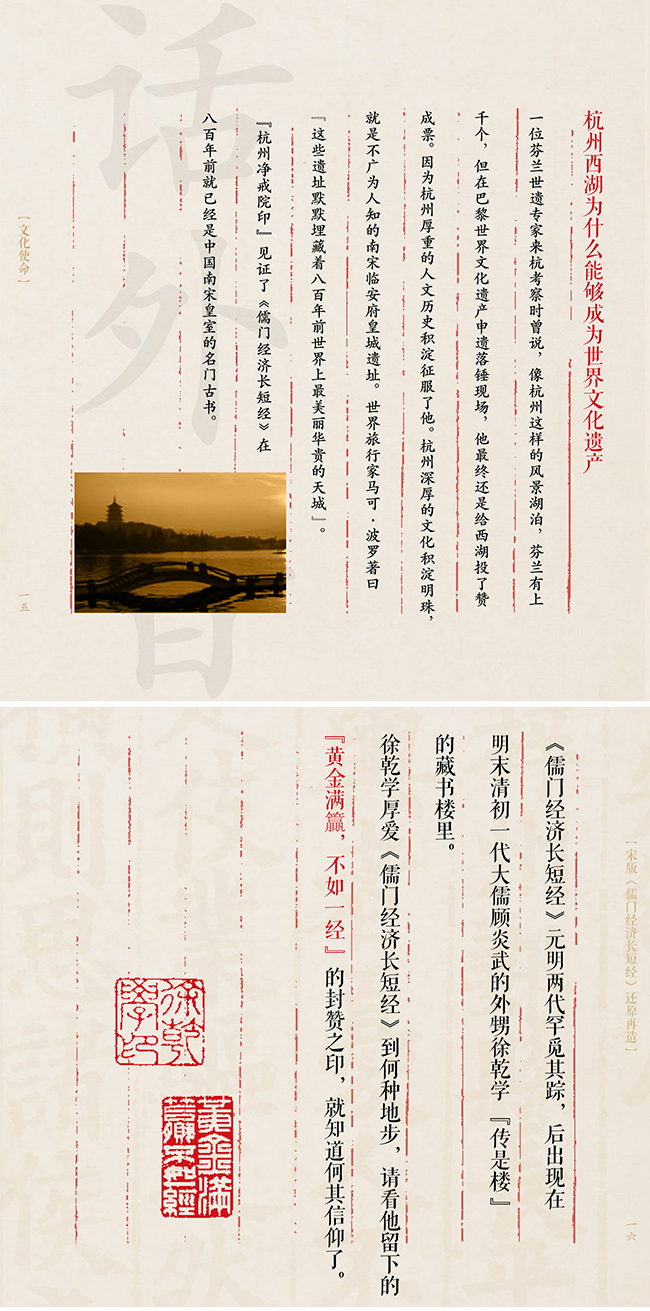 话外音
杭州西湖为什么能够成为世界文化遗产
一位芬兰世遗专家来杭考察时曾说，像杭州这样的风景湖泊，芬兰有上
千个，但在巴黎世界文化遗产申遗落锤现场，他最终还是给西湖投了赞
成票。因为杭州厚重的人文历史积淀征服了他。杭州深厚的文化积淀明珠，
就是不广为人知的南宋临安府皇城遗址。世界旅行家马可·波罗著曰
『这些遗址默默埋藏着八百年前世界上最美丽华贵的天城』。
『杭州净戒院印』见证了《儒门经济长短经》在
八百年前就已经是中国南宋皇室的名门古书。
［文化使命］
一五
［宋版《儒门经济长短经》还原再造］
一六
《儒门经济长短经》元明两代罕觅其踪，后出现在
明末清初一代大儒顾炎武的外甥徐乾学『传是楼』
的藏书楼里。
徐乾学厚爱《儒门经济长短经》到何种地步，请看他留下的
『黄金满籯，不如一经』的封赞之印，就知道何其信仰了。
徐乾
学印
黄金满
籯不如一經